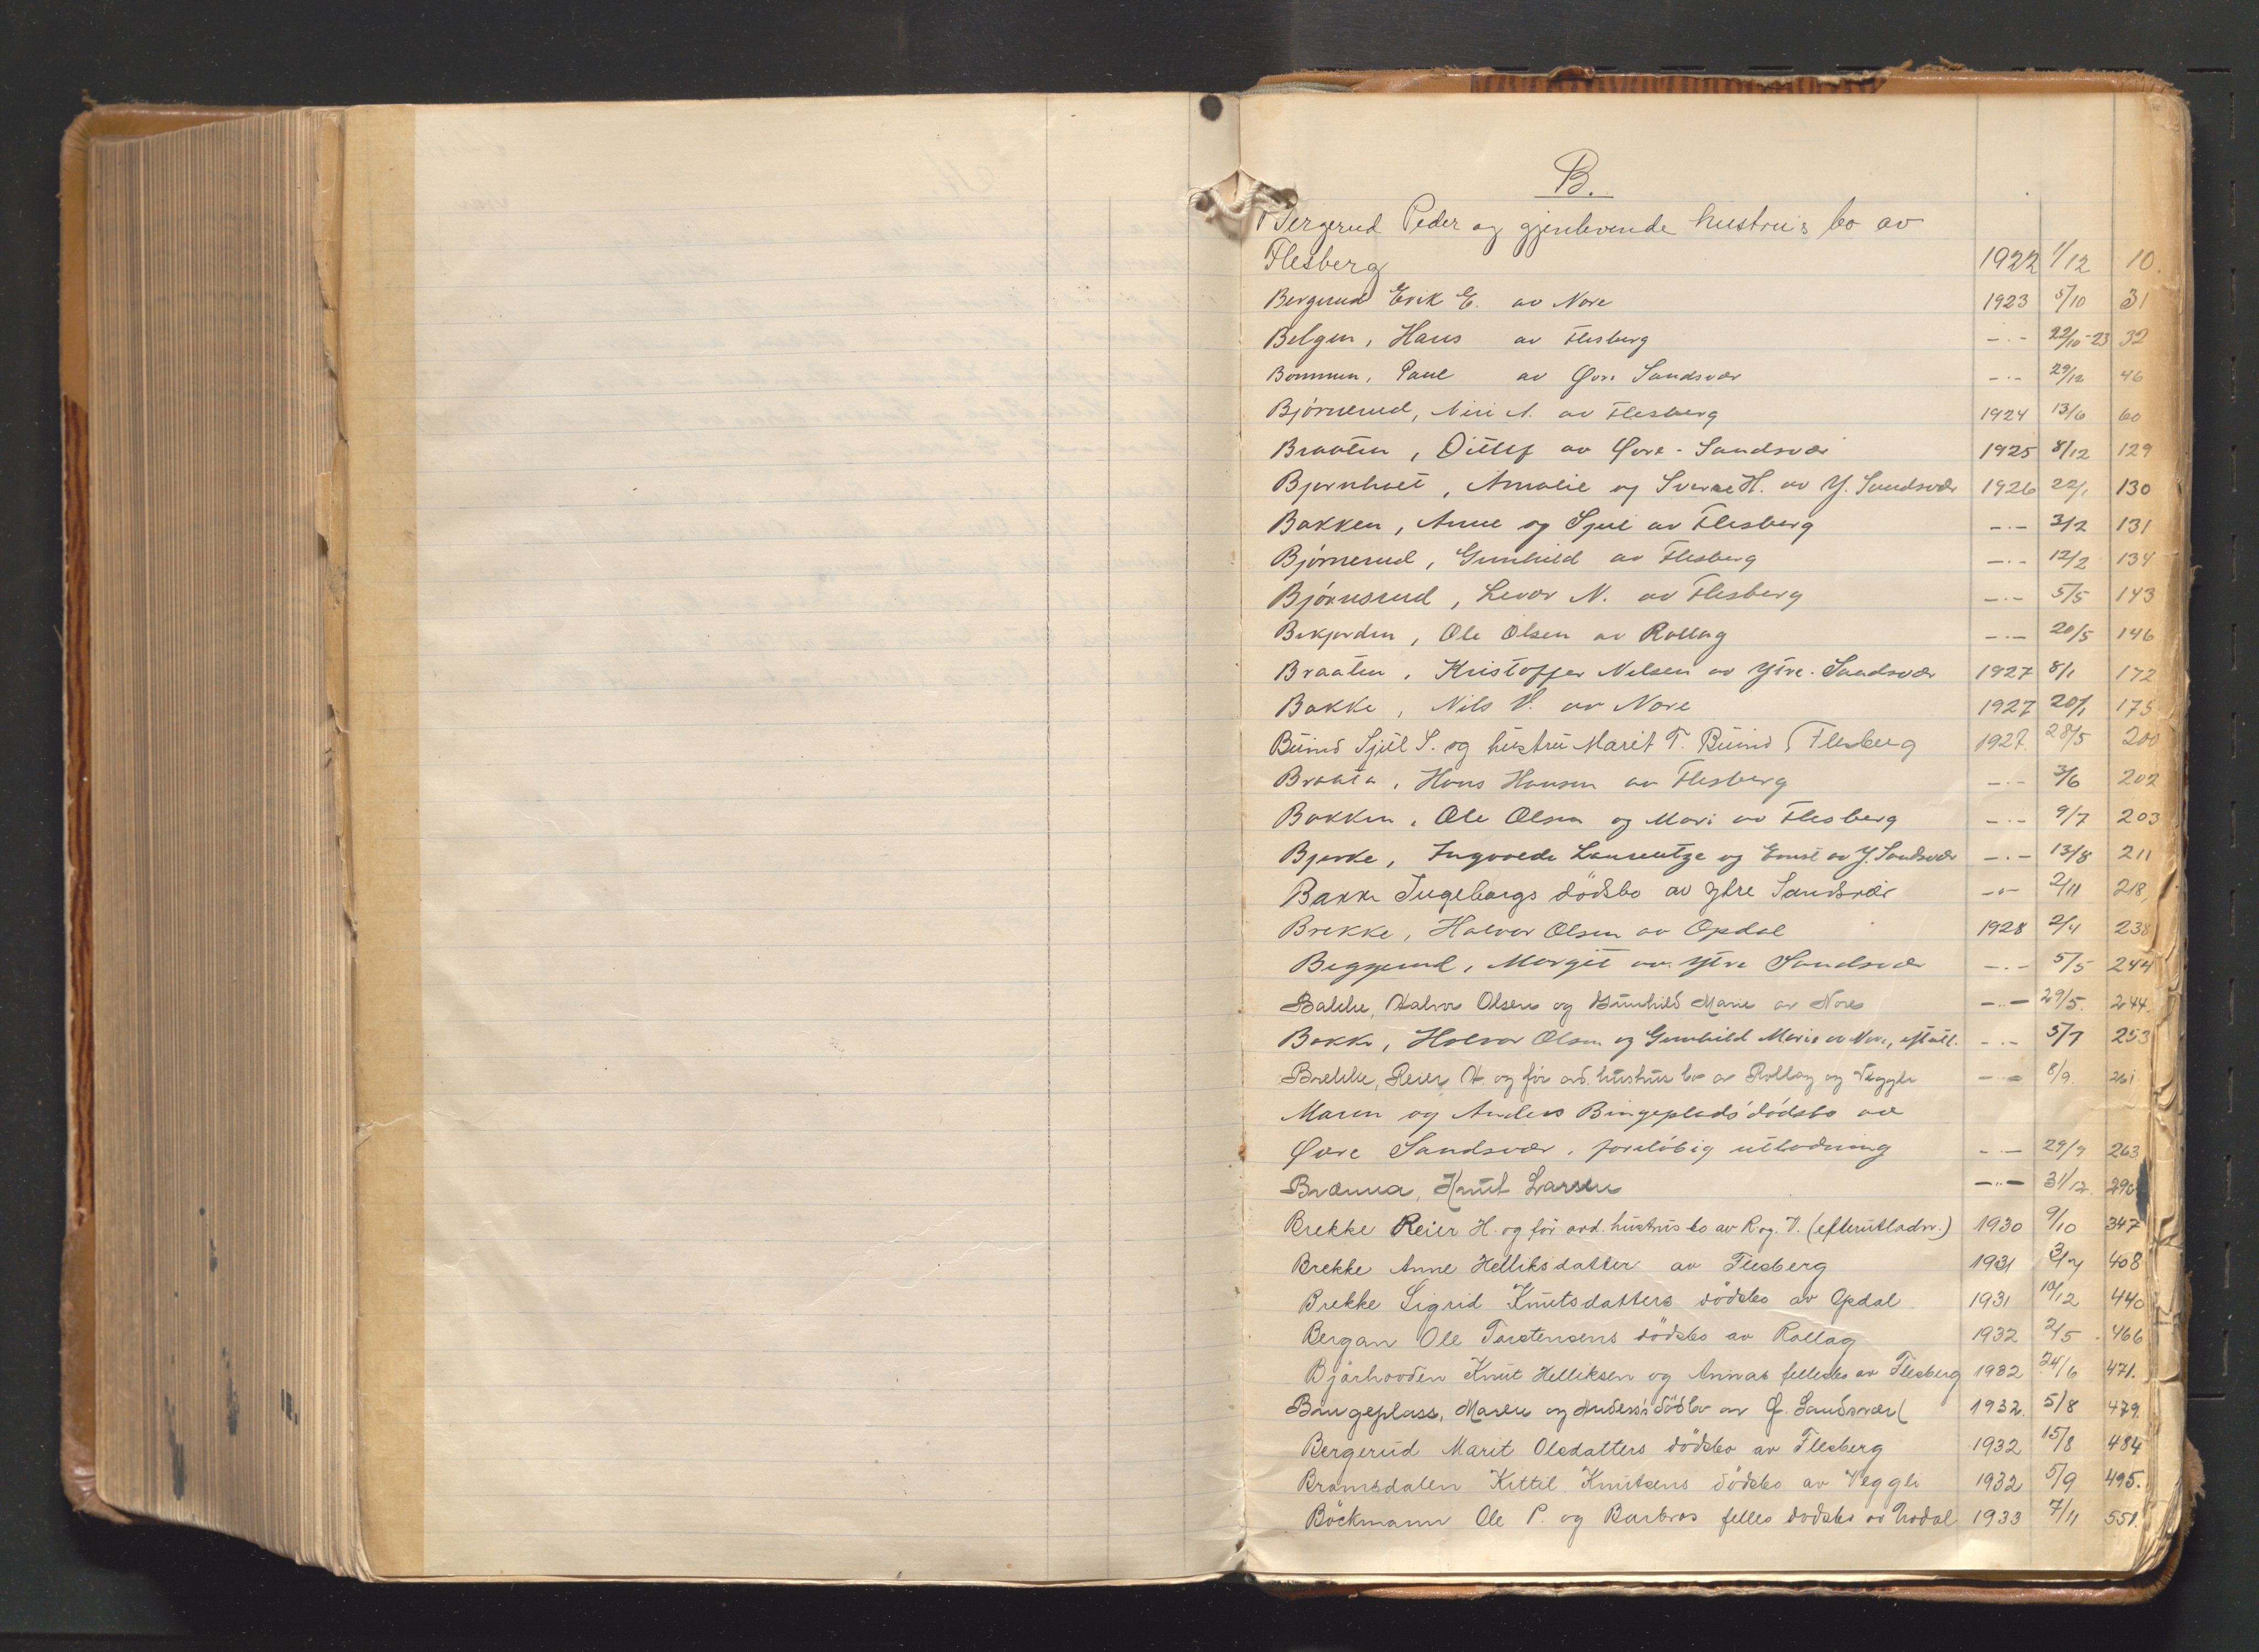 B.
Bergerud Peder og gjenlevende hustru's bo av
Flesberg 1922 1/12 10.
Bergerud Erik E. av Nore 1923 5/10 31
Belgen, Hans av Flesberg -.- 22/10-23 32
Bommen, Paul av Øvre Sandsvær -.- 29/12 46
Bjørnerud, Niri N. av Flesberg 1924 13/6 60
Braaten, Ditlef av Øvre-Sandsvær 1925 8/12 129
Bjørnhoet, Amalie og Sverre H. av Y. Sandsvær 1926 22/1 130
Bakken, Anne og Sjul av Flesberg -.- 3/2 131
Bjørnerud, Gunhild av Flesberg -.- 12/2 134
Bjørnsrud, Levor N. av Flesberg -.- 5/5 143
Bekjorden, Ole Olsen av Rollag -.- 20/5 146
Braaten, Kristoffer Nilsen av Ytre-Sandsvær 1927 8/1 172
Bakke, Nils V. av Nore 1927 20/1 175
Buind Sjul S. og hustru Marit T. Buind, Flesberg 1927. 28/5 200
Braata, Hans Hansen av Flesberg -.- 3/6 202
Bakken, Ole Olsen og Mari av Flesberg -.- 9/7 203
Bjerke, Ingvoede Laurentze og Ernst av Y. Sandsvær -.- 13/8 211
Bakke Ingeborgs dödsbo av Ytre Sandsvær -.- 2/11 218
Brekke, Halvor Olsen av Opdal 1928 2/4 238
Beggerud, Margit av Ytre Sandsvær -.- 5/5 244
Bakke, Halvor Olsen og Gunhild Marie av Nore -..- 29/5. 244.
Bakke, Halvor Olsen og Gunhild Marie av Nore, eft.utl. -.- 5/7 253
Brekke, Reier H. og før avd. hustrus bo av Rollag og Veggli -.- 8/9. 261
Maren og Anders Bingeplads' dødsbo av
Øvre Sandsvær, foreløbig utlodning -.- 29/9 263
Brænna, Knut Larsen -..- 31/12. 290
Brekke Reier H. og før avd. hustrus bo av R. og V. (efterutlodn.) 1930 9/10 347
Brekke Anne Helliksdatter av Flesberg 1931 3/7 408
Brekke Sigrid Knutsdatters dödsbo av Opdal 1931 10/12 440
Bergan Ole Torstensens dödsbo av Rollag 1932 2/5 466
Bjørhovden Knut Helliksen og Annas fellesbo av Flesberg 1932 24/6 471.
Bingeplass, Maren og Anders's dödsbo av Ø. Sandsvær 1932. 5/8 479.
Bergerud Marit Olsdatters dödsbo av Flesberg 1932 15/8 484
Bramsdalen Kittil Knutsens dödsbo av Veggli 1932 5/9 495.
Böckmann Ole P. og Barbros felles dødsbo av Uvdal 1933 7/11 551.